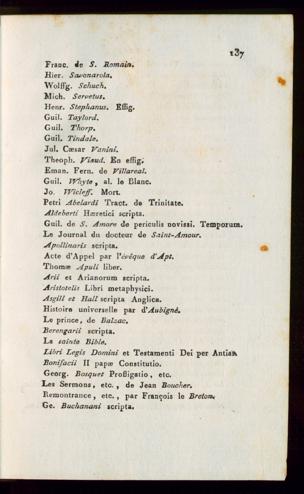 137
Franc. de S. Romain.
Hier. Savonarola.
Wolffg. Schuch.
Mich. Servetus.
Henr. Stephanus. Effig.
Guil. Taylord.
Guil. Thorp.
Guil. Tindale.
Jul. Cæsar Vanini.
Theoph. Viaud. En effig.
Eman. Fern. de Villareal.
Guil. Whyte, al. le Blanc.
Jo. Wicleff. Mort.
Petri Abelardi Tract. de Trinitate.
Aldeberti Hæretici scripta.
Guil. de S. Amore de periculis novissi. Temporum.
Le Journal du docteur de Saint-Amour.
Apollinaris scripta.
Acte d'Appel par l'évêque d'Apt.
Thomæ Apuli liber.
Arii et Arianorum scripta.
Aristotelis Libri metaphysici.
Asgill et Hall scripta Anglica.
Histoire universelle par d'Aubigné.
Le prince, de Balzac.
Berengarii scripta.
La sainte Bible.
Libri Legis Domini et Testamenti Dei per Antian
Bonifacii II papæ Constitutio.
Georg. Bosquet Profligatio, etc.
Les Sermons, etc., de Jean Boucher.
Remontrance, etc., par François le Breton.
Ge. Buchanani scripta.